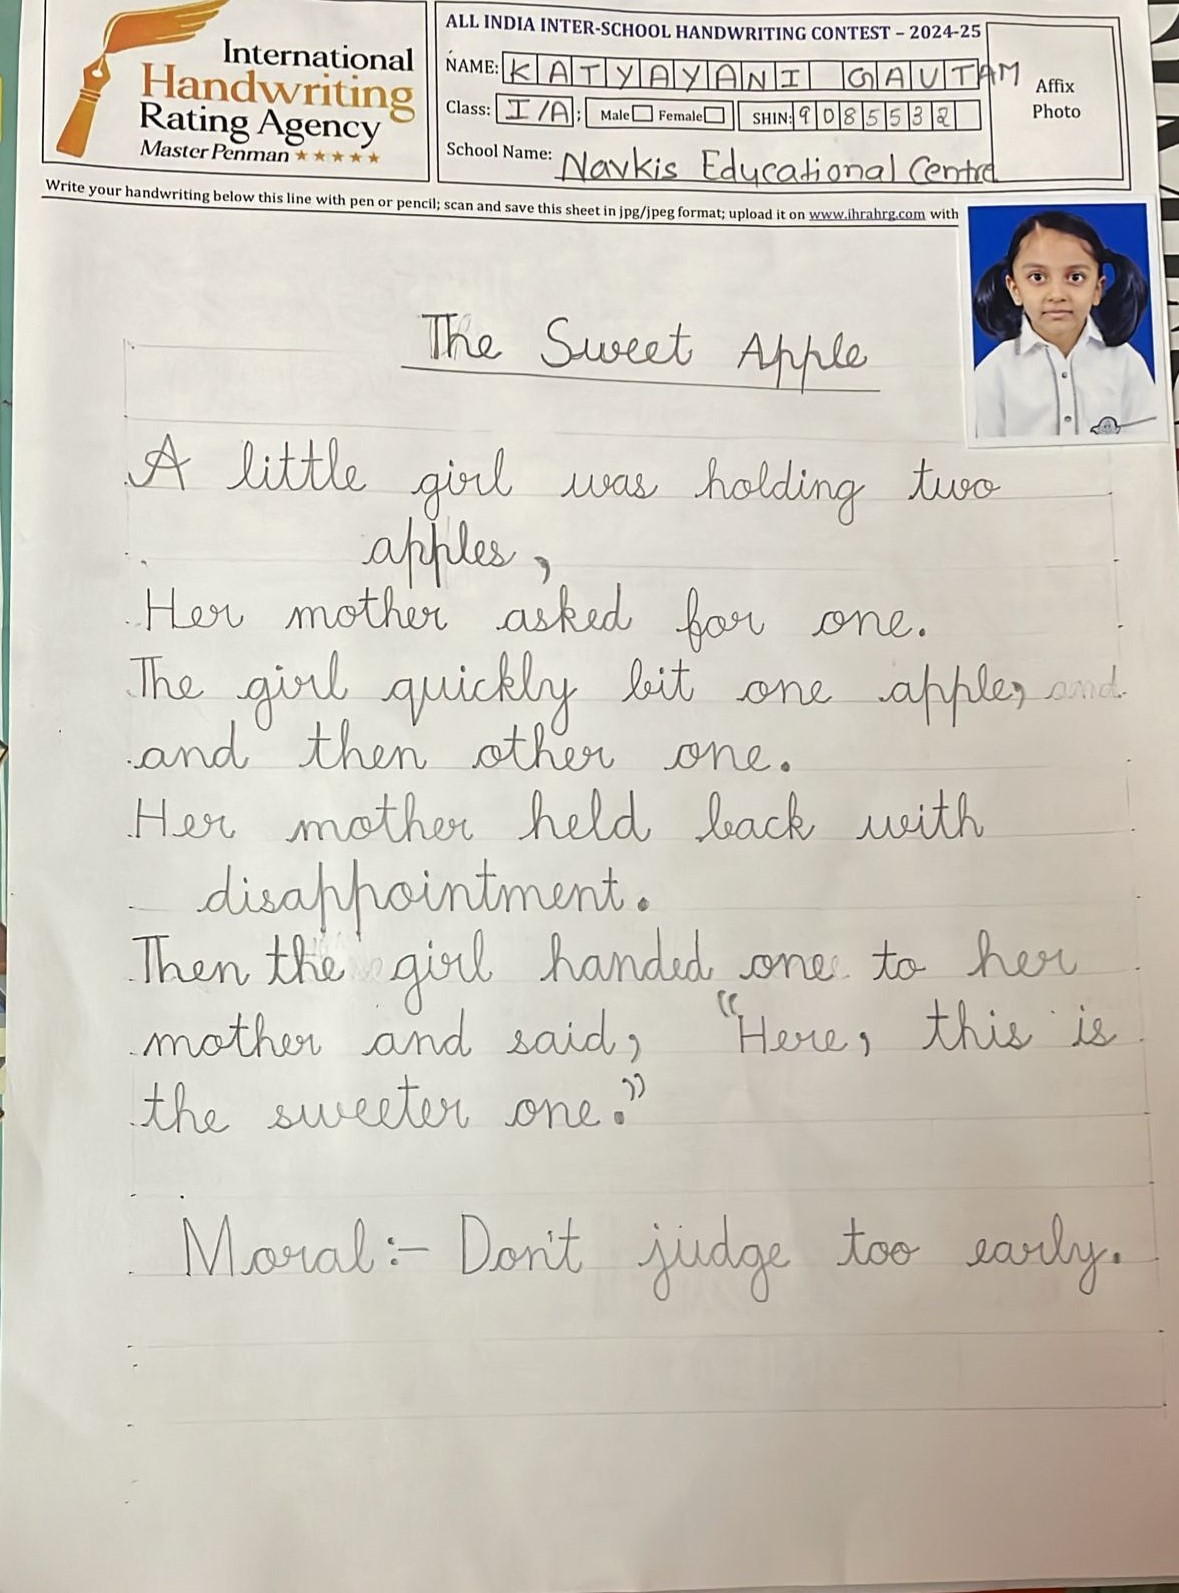 International
Handwriting
Rating Agency
Master Penman ★★★★★
ALL INDIA INTER-SCHOOL HANDWRITING CONTEST – 2024-25
NAME: KATYAYANI GAUTAM
Class: I/A; Male Female SHIN: 9085532
School Name: Navkis Educational Centre
Affix
Photo
Write your handwriting below this line with pen or pencil; scan and save this sheet in jpg/jpeg format; upload it on www.ihrahrg.com with
The Sweet Apple
A little girl was holding two
apples,
Her mother asked for one.
The girl quickly bit one apple, and
and then other one.
Her mother held back with
disappointment.
Then the girl handed one to her
mother and said, "Here, this is
the sweeter one."
Moral:- Don't judge too early.